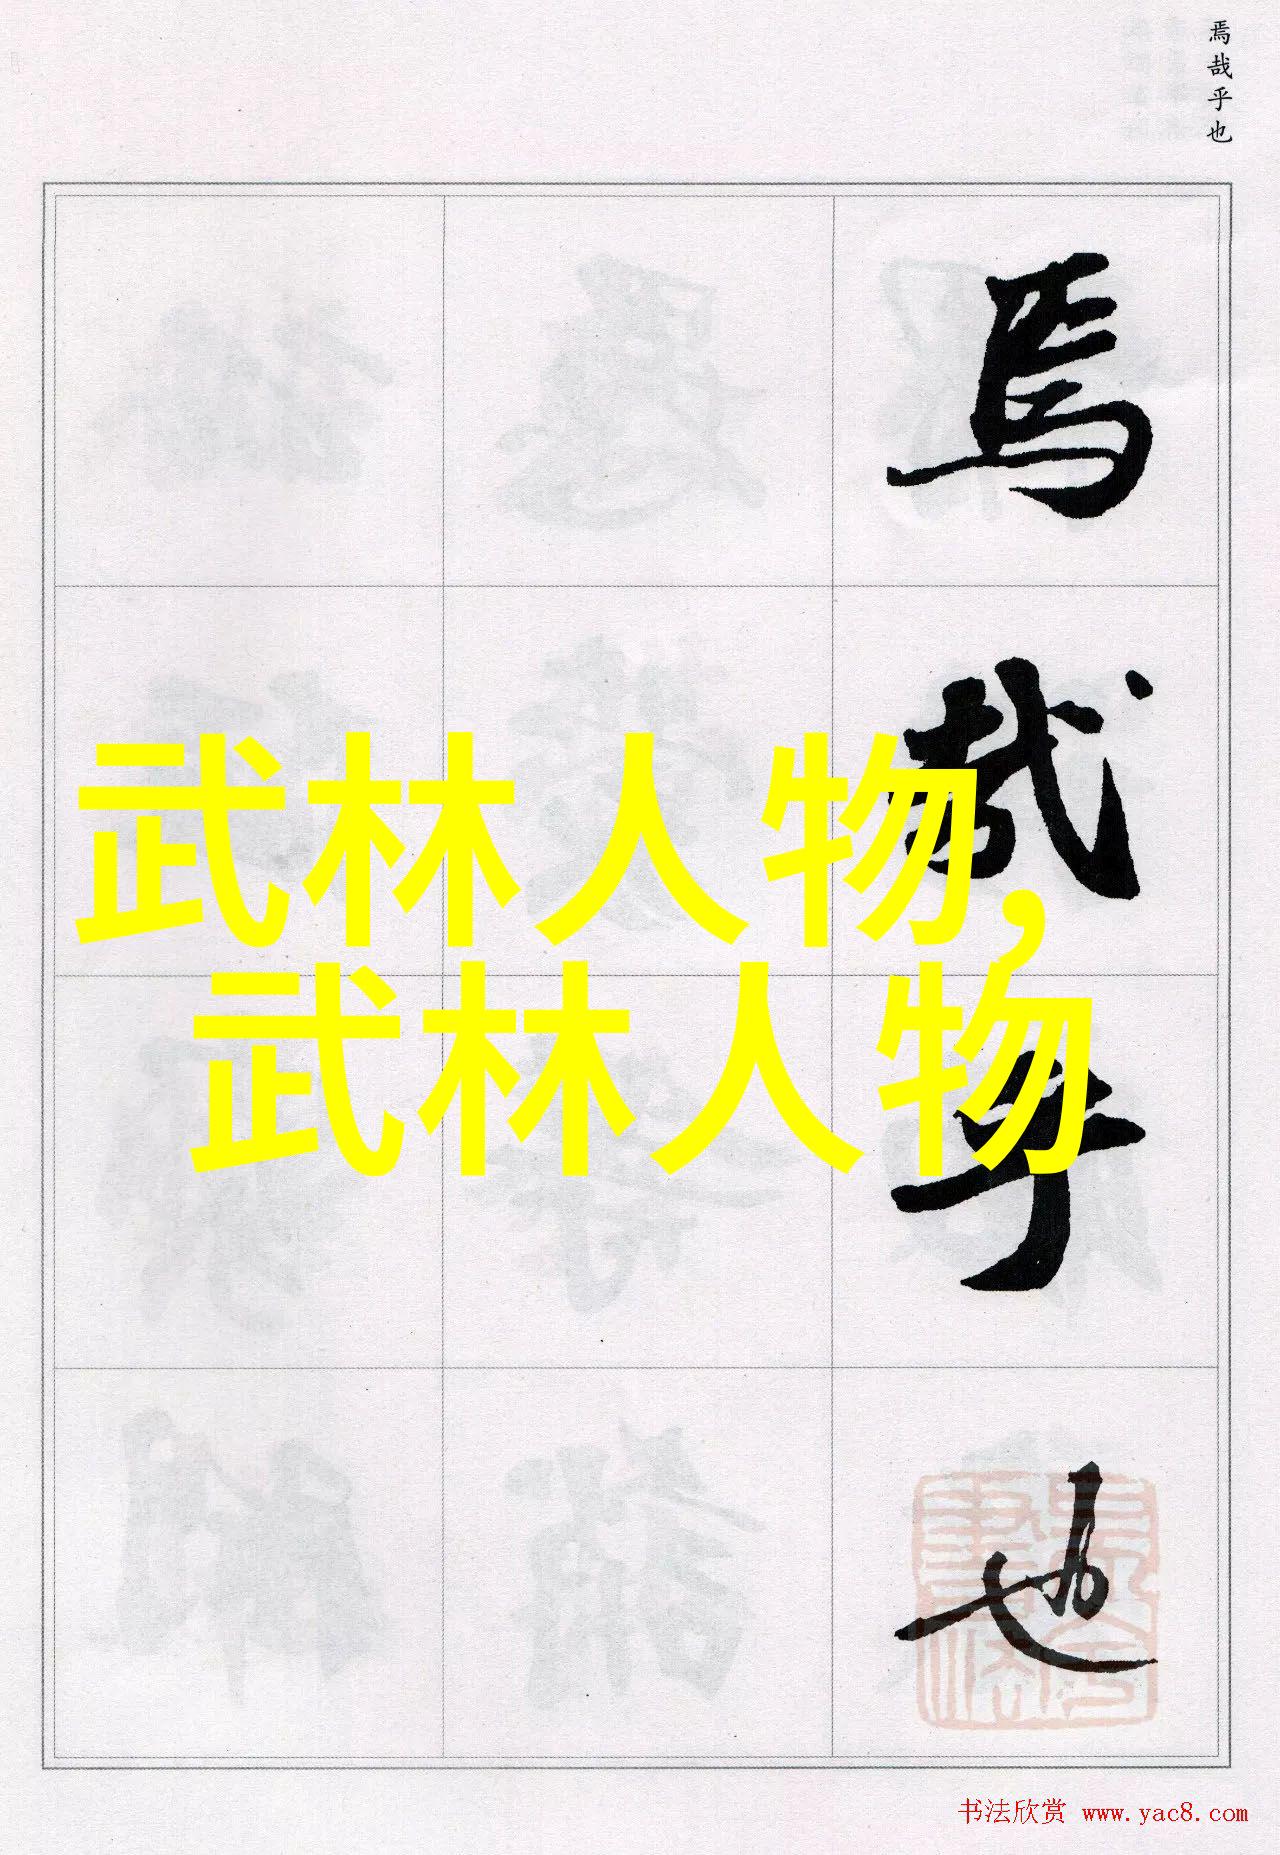 焉哉乎也
焉
哉
乎
也
武林人物,
武林人物
书法欣赏 www.yac8.com